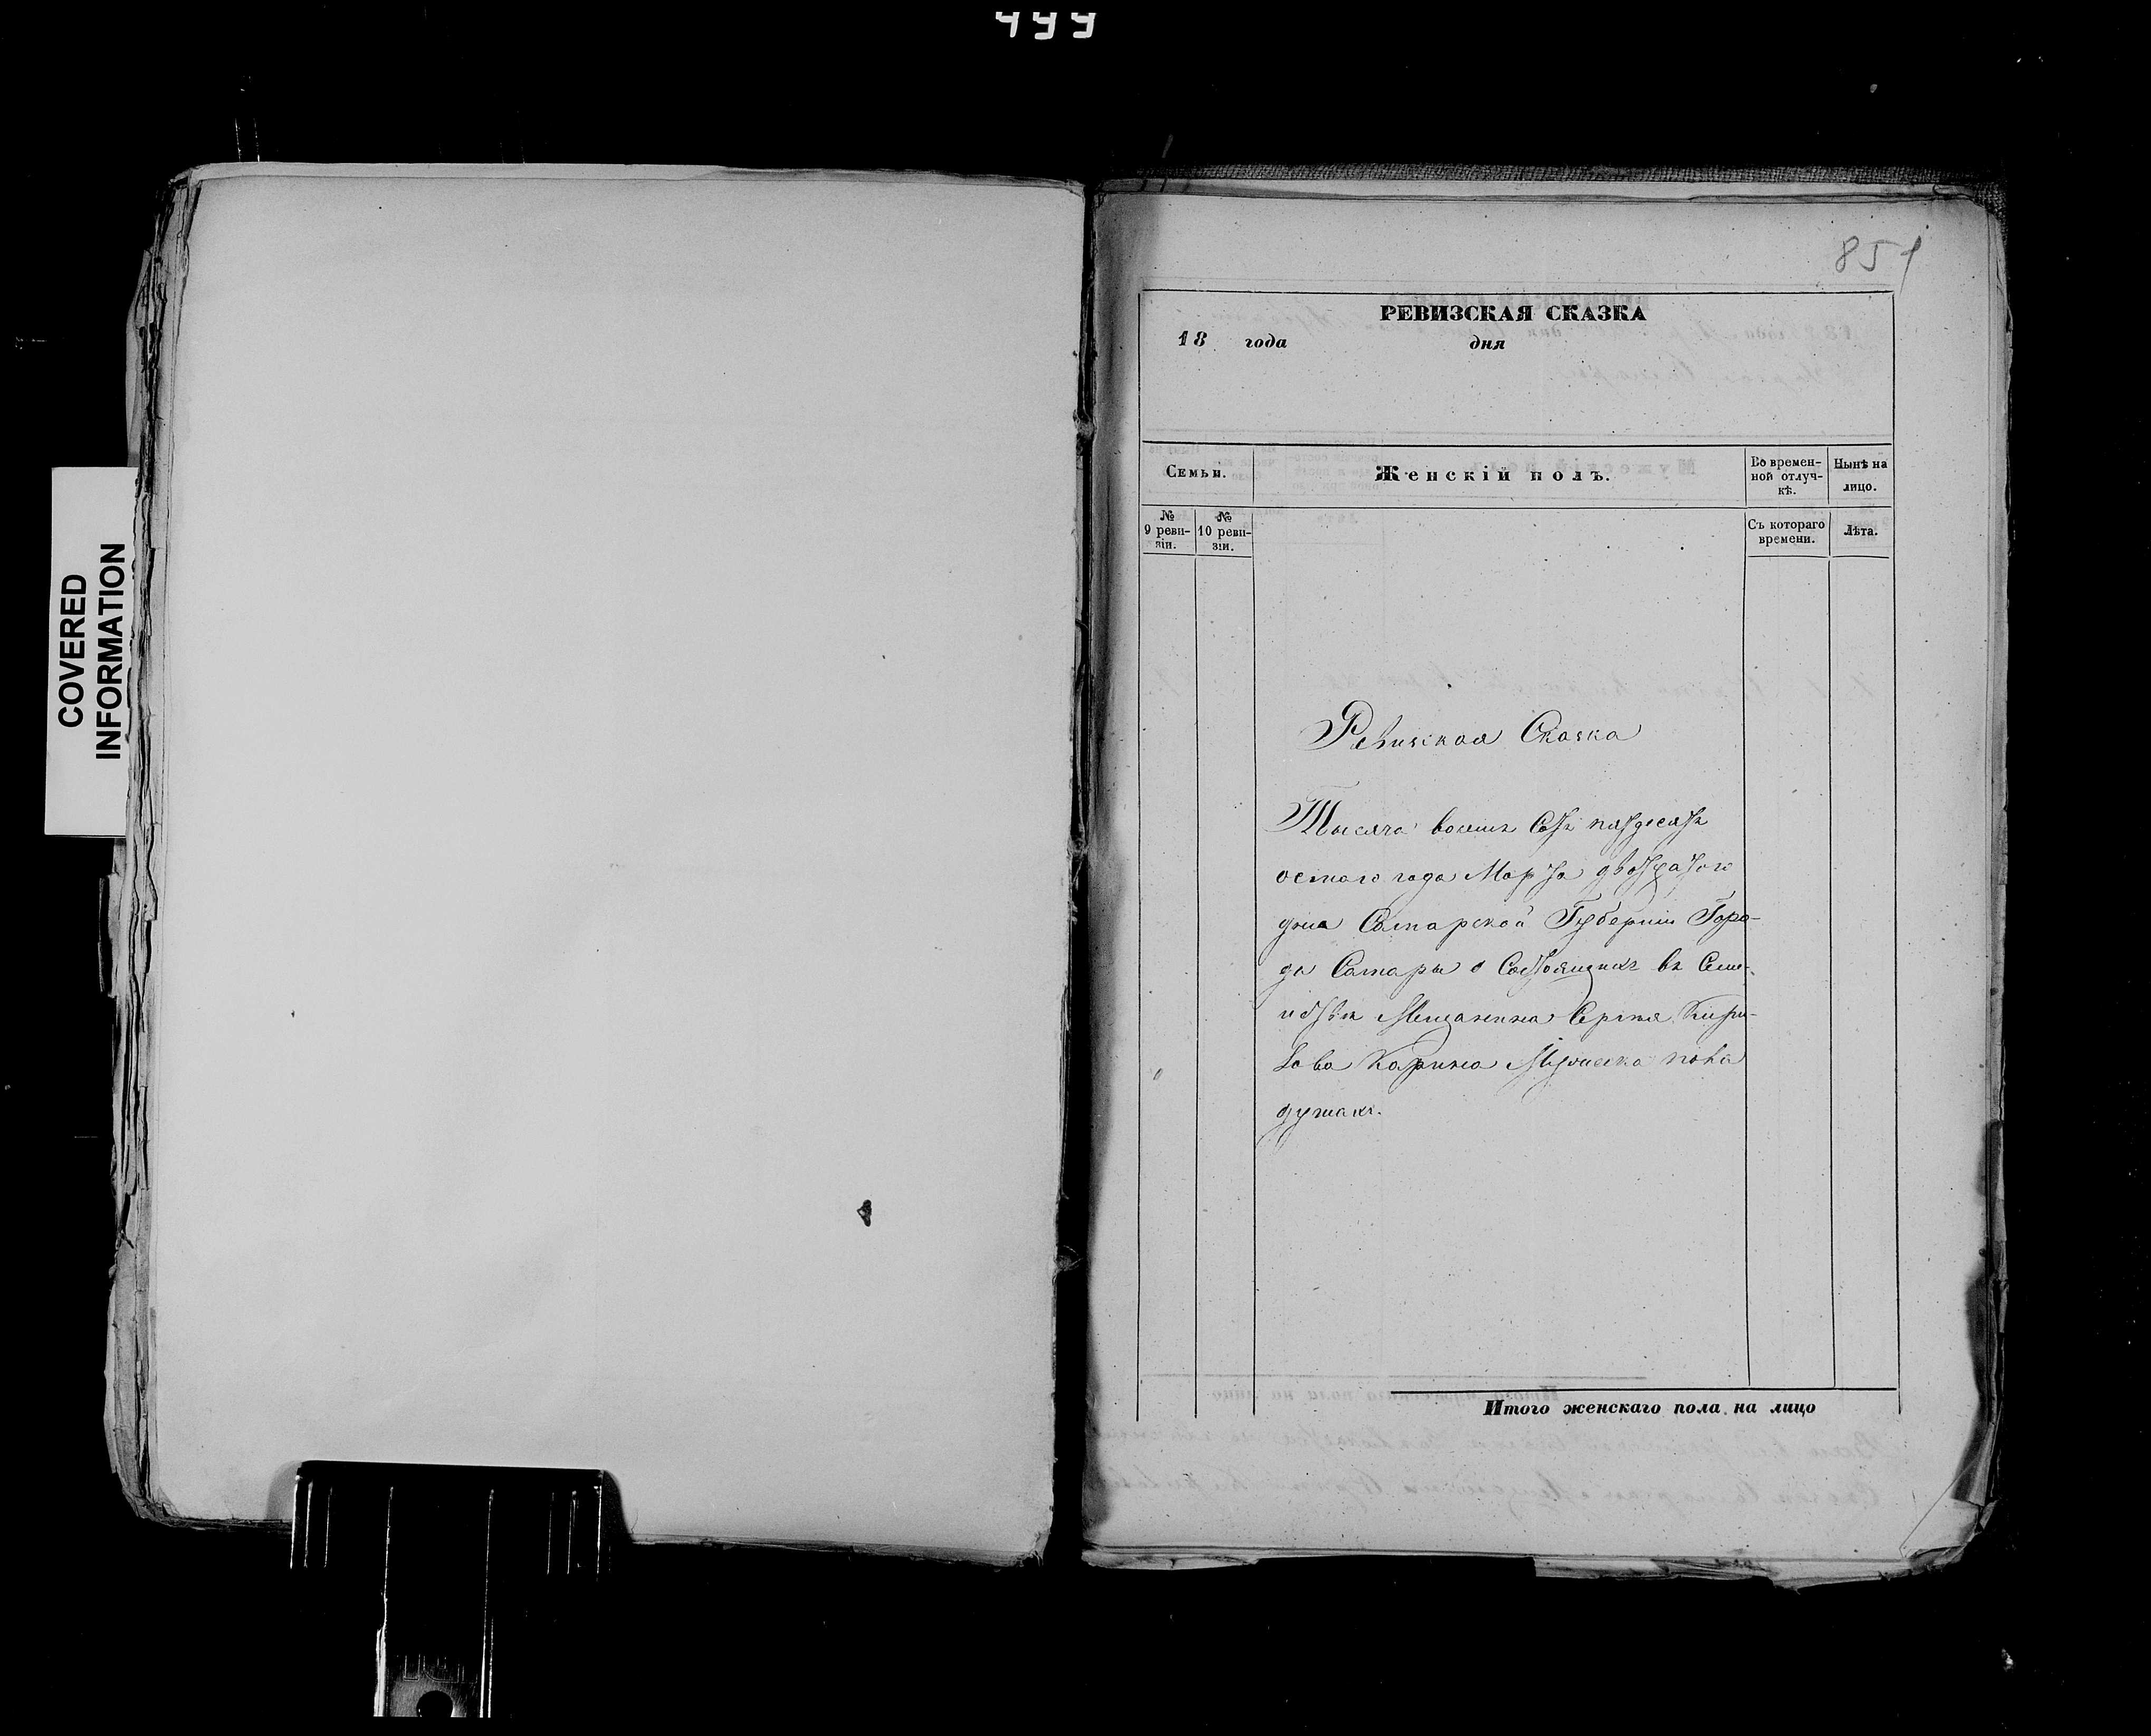 499
851
РЕВИЗСКАЯ СКАЗКА
18 года дня
Семьи. Женскій полъ. Во времен-ной отлуч-кѣ. Нынѣ на лицо.
№ 9 реви-зіи. № 10 реви-зіи. Съ котораго времени. Лѣта.
COVERED
INFORMATION
Ревизская Сказка
Тысяча восемь Сотъ пятдесятъ
осмаго года Марта двадцатого
дня Самарской Губерніи Горо-
да Самары о Состоящихъ въ Семе-
йствѣ Мещанина Сергѣя Кири-
лова Карина Мужеска пола
душахъ.
Итого женскаго пола на лицо